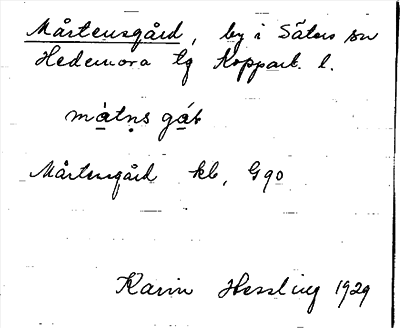 Mårtensgård, by i Säters sn
Hedemora tg Kopparb. l.
Mårtensgård kb, G90
Karin Hessling 1929